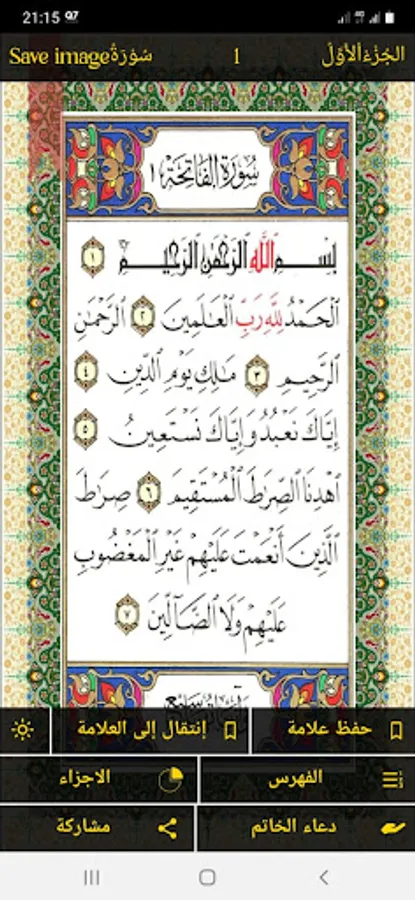 21:15
Save image سُوْرَةُ 1 الجُزْءُالأوَّلُ
سُورَةُ الفَاتِحَة ١
بِسْمِ اللَّهِ الرَّحْمَنِ الرَّحِيمِ ١
الْحَمْدُ لِلَّهِ رَبِّ الْعَالَمِينَ ٢ الرَّحْمَنِ
الرَّحِيمِ ٣ مَلِكِ يَوْمِ الدِّينِ ٤
إِيَّاكَ نَعْبُدُ وَإِيَّاكَ نَسْتَعِينُ ٥
اهْدِنَا الصِّرَطَ الْمُسْتَقِيمَ ٦ صِرَاطَ
الَّذِينَ أَنْعَمْتَ عَلَيْهِمْ غَيْرِ الْمَغْضُوبِ
عَلَيْهِمْ وَلَا الضَّالِّينَ ٧
حفظ علامة
إنتقال إلى العلامة
الفهرس
الاجزاء
دعاء الخاتم
مشاركة